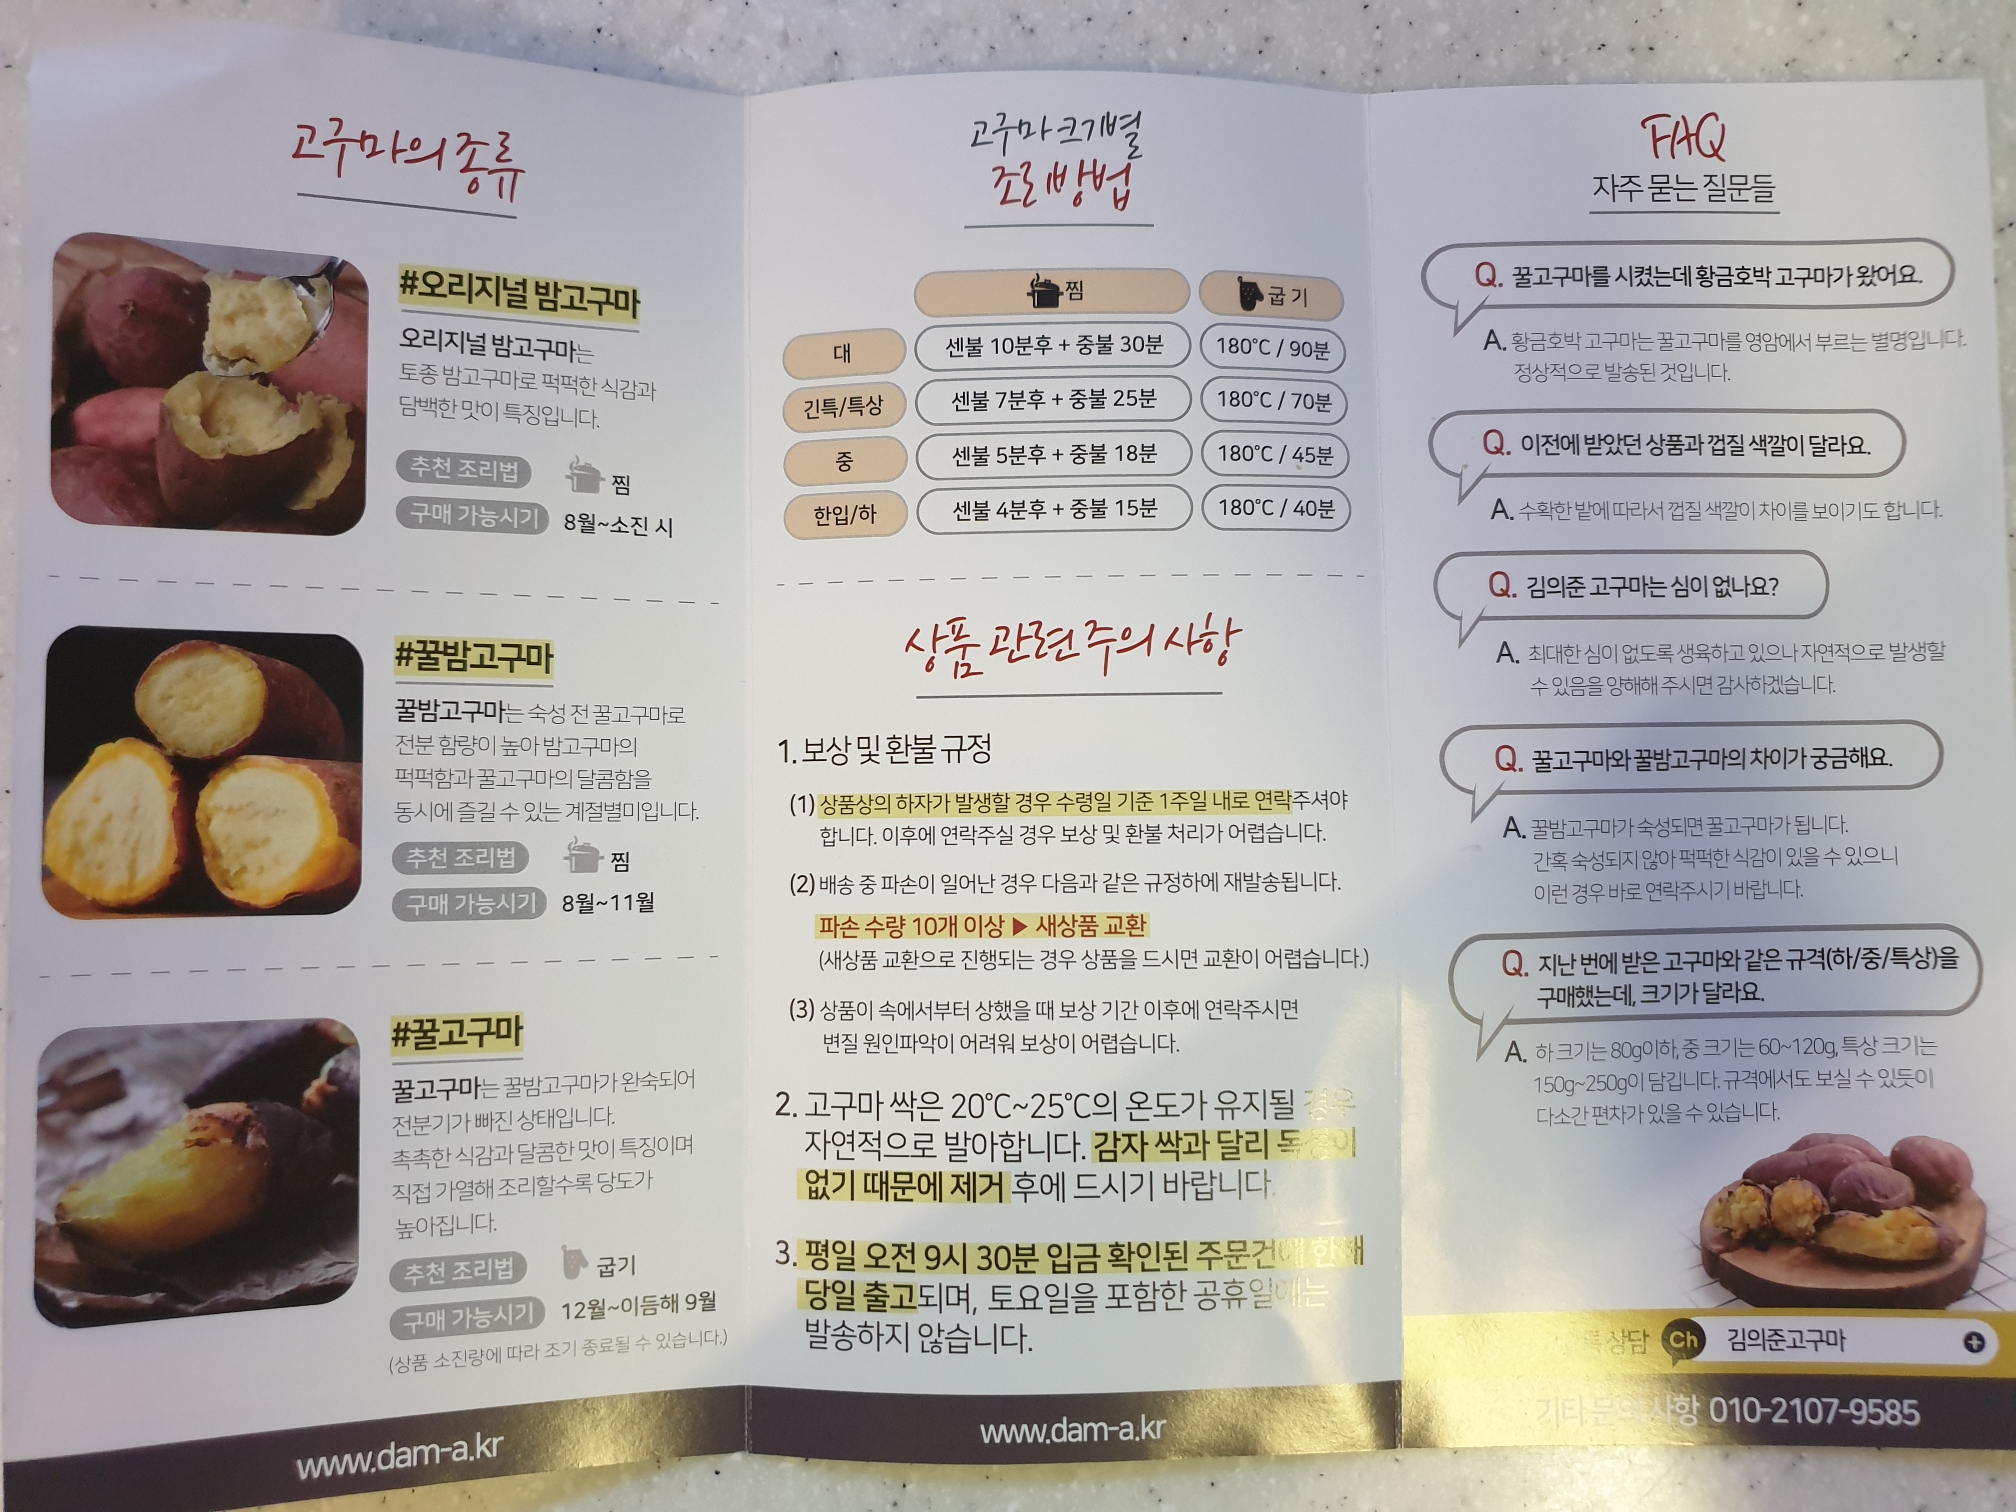 고구마의 종류
#오리지널 밤고구마
오리지널 밤고구마는
토종 밤고구마로 퍽퍽한 식감과
담백한 맛이 특징입니다.
추천 조리법 찜
구매 가능시기 8월~소진 시
#꿀밤고구마
꿀밤고구마는 숙성 전 꿀고구마로
전분 함량이 높아 밤고구마의
퍽퍽함과 꿀고구마의 달콤함을
동시에 즐길 수 있는 계절별미입니다.
추천 조리법 찜
구매 가능시기 8월~11월
#꿀고구마
꿀고구마는 꿀밤고구마가 완숙되어
전분기가 빠진 상태입니다.
촉촉한 식감과 달콤한 맛이 특징이며
직접 가열해 조리할수록 당도가
높아집니다.
추천 조리법 굽기
구매 가능시기 12월~이듬해 9월
(상품 소진량에 따라 조기 종료될 수 있습니다.)
www.dam-a.kr
고구마 크기별
조리 방법
찜 굽기
대 센불 10분후 + 중불 30분 180℃ / 90분
긴특/특상 센불 7분후 + 중불 25분 180℃ / 70분
중 센불 5분후 + 중불 18분 180℃ / 45분
한입/하 센불 4분후 + 중불 15분 180℃ / 40분
상품 관련 주의 사항
1. 보상 및 환불 규정
(1) 상품상의 하자가 발생할 경우 수령일 기준 1주일 내로 연락주셔야
합니다. 이후에 연락주실 경우 보상 및 환불 처리가 어렵습니다.
(2) 배송 중 파손이 일어난 경우 다음과 같은 규정하에 재발송됩니다.
파손 수량 10개 이상 ▶ 새상품 교환
(새상품 교환으로 진행되는 경우 상품을 드시면 교환이 어렵습니다.)
(3) 상품이 속에서부터 상했을 때 보상 기간 이후에 연락주시면
변질 원인파악이 어려워 보상이 어렵습니다.
2. 고구마 싹은 20℃~25℃의 온도가 유지될 경우
자연적으로 발아합니다. 감자 싹과 달리 독성이
없기 때문에 제거 후에 드시기 바랍니다.
3. 평일 오전 9시 30분 입금 확인된 주문건에 한해
당일 출고되며, 토요일을 포함한 공휴일에는
발송하지 않습니다.
www.dam-a.kr
FAQ
자주 묻는 질문들
Q. 꿀고구마를 시켰는데 황금호박 고구마가 왔어요.
A. 황금호박 고구마는 꿀고구마를 영암에서 부르는 별명입니다.
정상적으로 발송된 것입니다.
Q. 이전에 받았던 상품과 껍질 색깔이 달라요.
A. 수확한 밭에 따라서 껍질 색깔이 차이를 보이기도 합니다.
Q. 김의준 고구마는 심이 없나요?
A. 최대한 심이 없도록 생육하고 있으나 자연적으로 발생할
수 있음을 양해해 주시면 감사하겠습니다.
Q. 꿀고구마와 꿀밤고구마의 차이가 궁금해요.
A. 꿀밤고구마가 숙성되면 꿀고구마가 됩니다.
간혹 숙성되지 않아 퍽퍽한 식감이 있을 수 있으니
이런 경우 바로 연락주시기 바랍니다.
Q. 지난 번에 받은 고구마와 같은 규격(하/중/특상)을
구매했는데, 크기가 달라요.
A. 하 크기는 80g이하, 중 크기는 60~120g, 특상 크기는
150g~250g이 담깁니다. 규격에서도 보실 수 있듯이
다소간 편차가 있을 수 있습니다.
상담 Ch 김의준고구마
기타 문의 사항 010-2107-9585